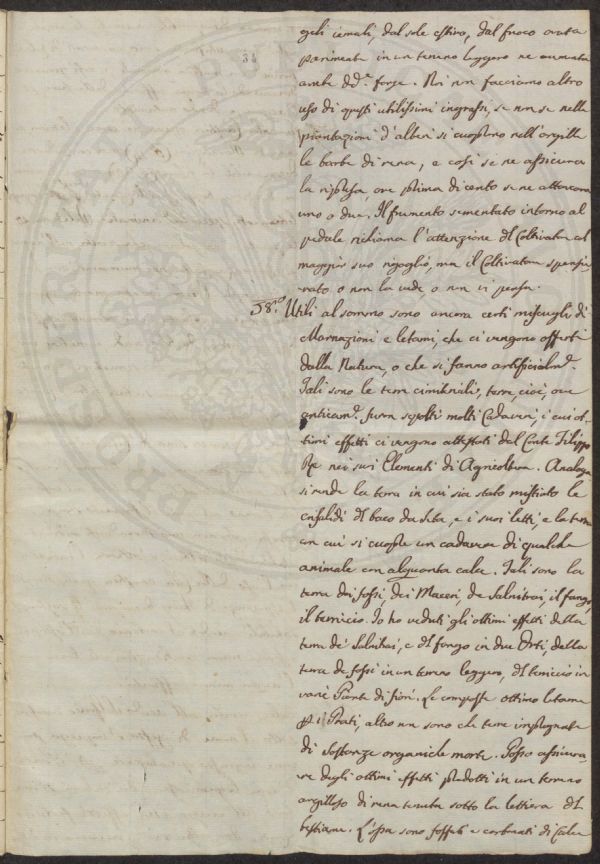 34
geli iemali, dal sole estivo, dal fuoco
parimente in un terreno leggero ne aumenta
ambe dde. forze. Noi non facciamo altro
uso di questi utilissimi ingrassi, se non se nelle
piantazioni d'alberi si cuoprono nell'argille
le barbe di rena, e così se ne assicura
la ripresa, ove prima di cento se ne attaccava
uno o due. Il frumento sementato intorno al
pedale richiama l'attenzione del Coltivatore col
maggior suo rigoglio, ma il Coltivatore spensie
rato o non la vede, o non vi pensa.
58.° Utili al sommo sono ancora certi miscugli di
Marnazioni e letami, che ci vengono offerti
dalla Natura, o che si fanno artificialme.
Tali sono le terre cimiteriali, terre, cioè, ove
anticame. furon sepolti molti Cadaveri, i cui ot-
timi effetti ci vengono attestati dal Conte Filippo
Re nei suoi Elementi di Agricoltura. Analoga
si rende la terra in cui sia stato mischiato le
crisalidi del baco da seta, e i suoi letti, e la terra
con cui si cuopre un cadavere di qualche
animale con alquanta calce. Tali sono la
terra dei fossi, dei Maceri, da Salnitrai, il fango,
il terriccio. Io ho veduti gli ottimi effetti della
terra de' Salnitrai, e del fango in due Orti, della
terra de fossi in un terreno leggero, del terriccio in
varie Piante di fiori. Le composte ottimo letame
p i Prati, altro non sono che terre impregnate
di sostanze organiche morte. Posso assicura
re degli ottimi effetti prodotti in un terreno
argilloso di rena tenuta sotto la lettiera del
bestiame. L'ossa sono fosfati e carbonati di Calce